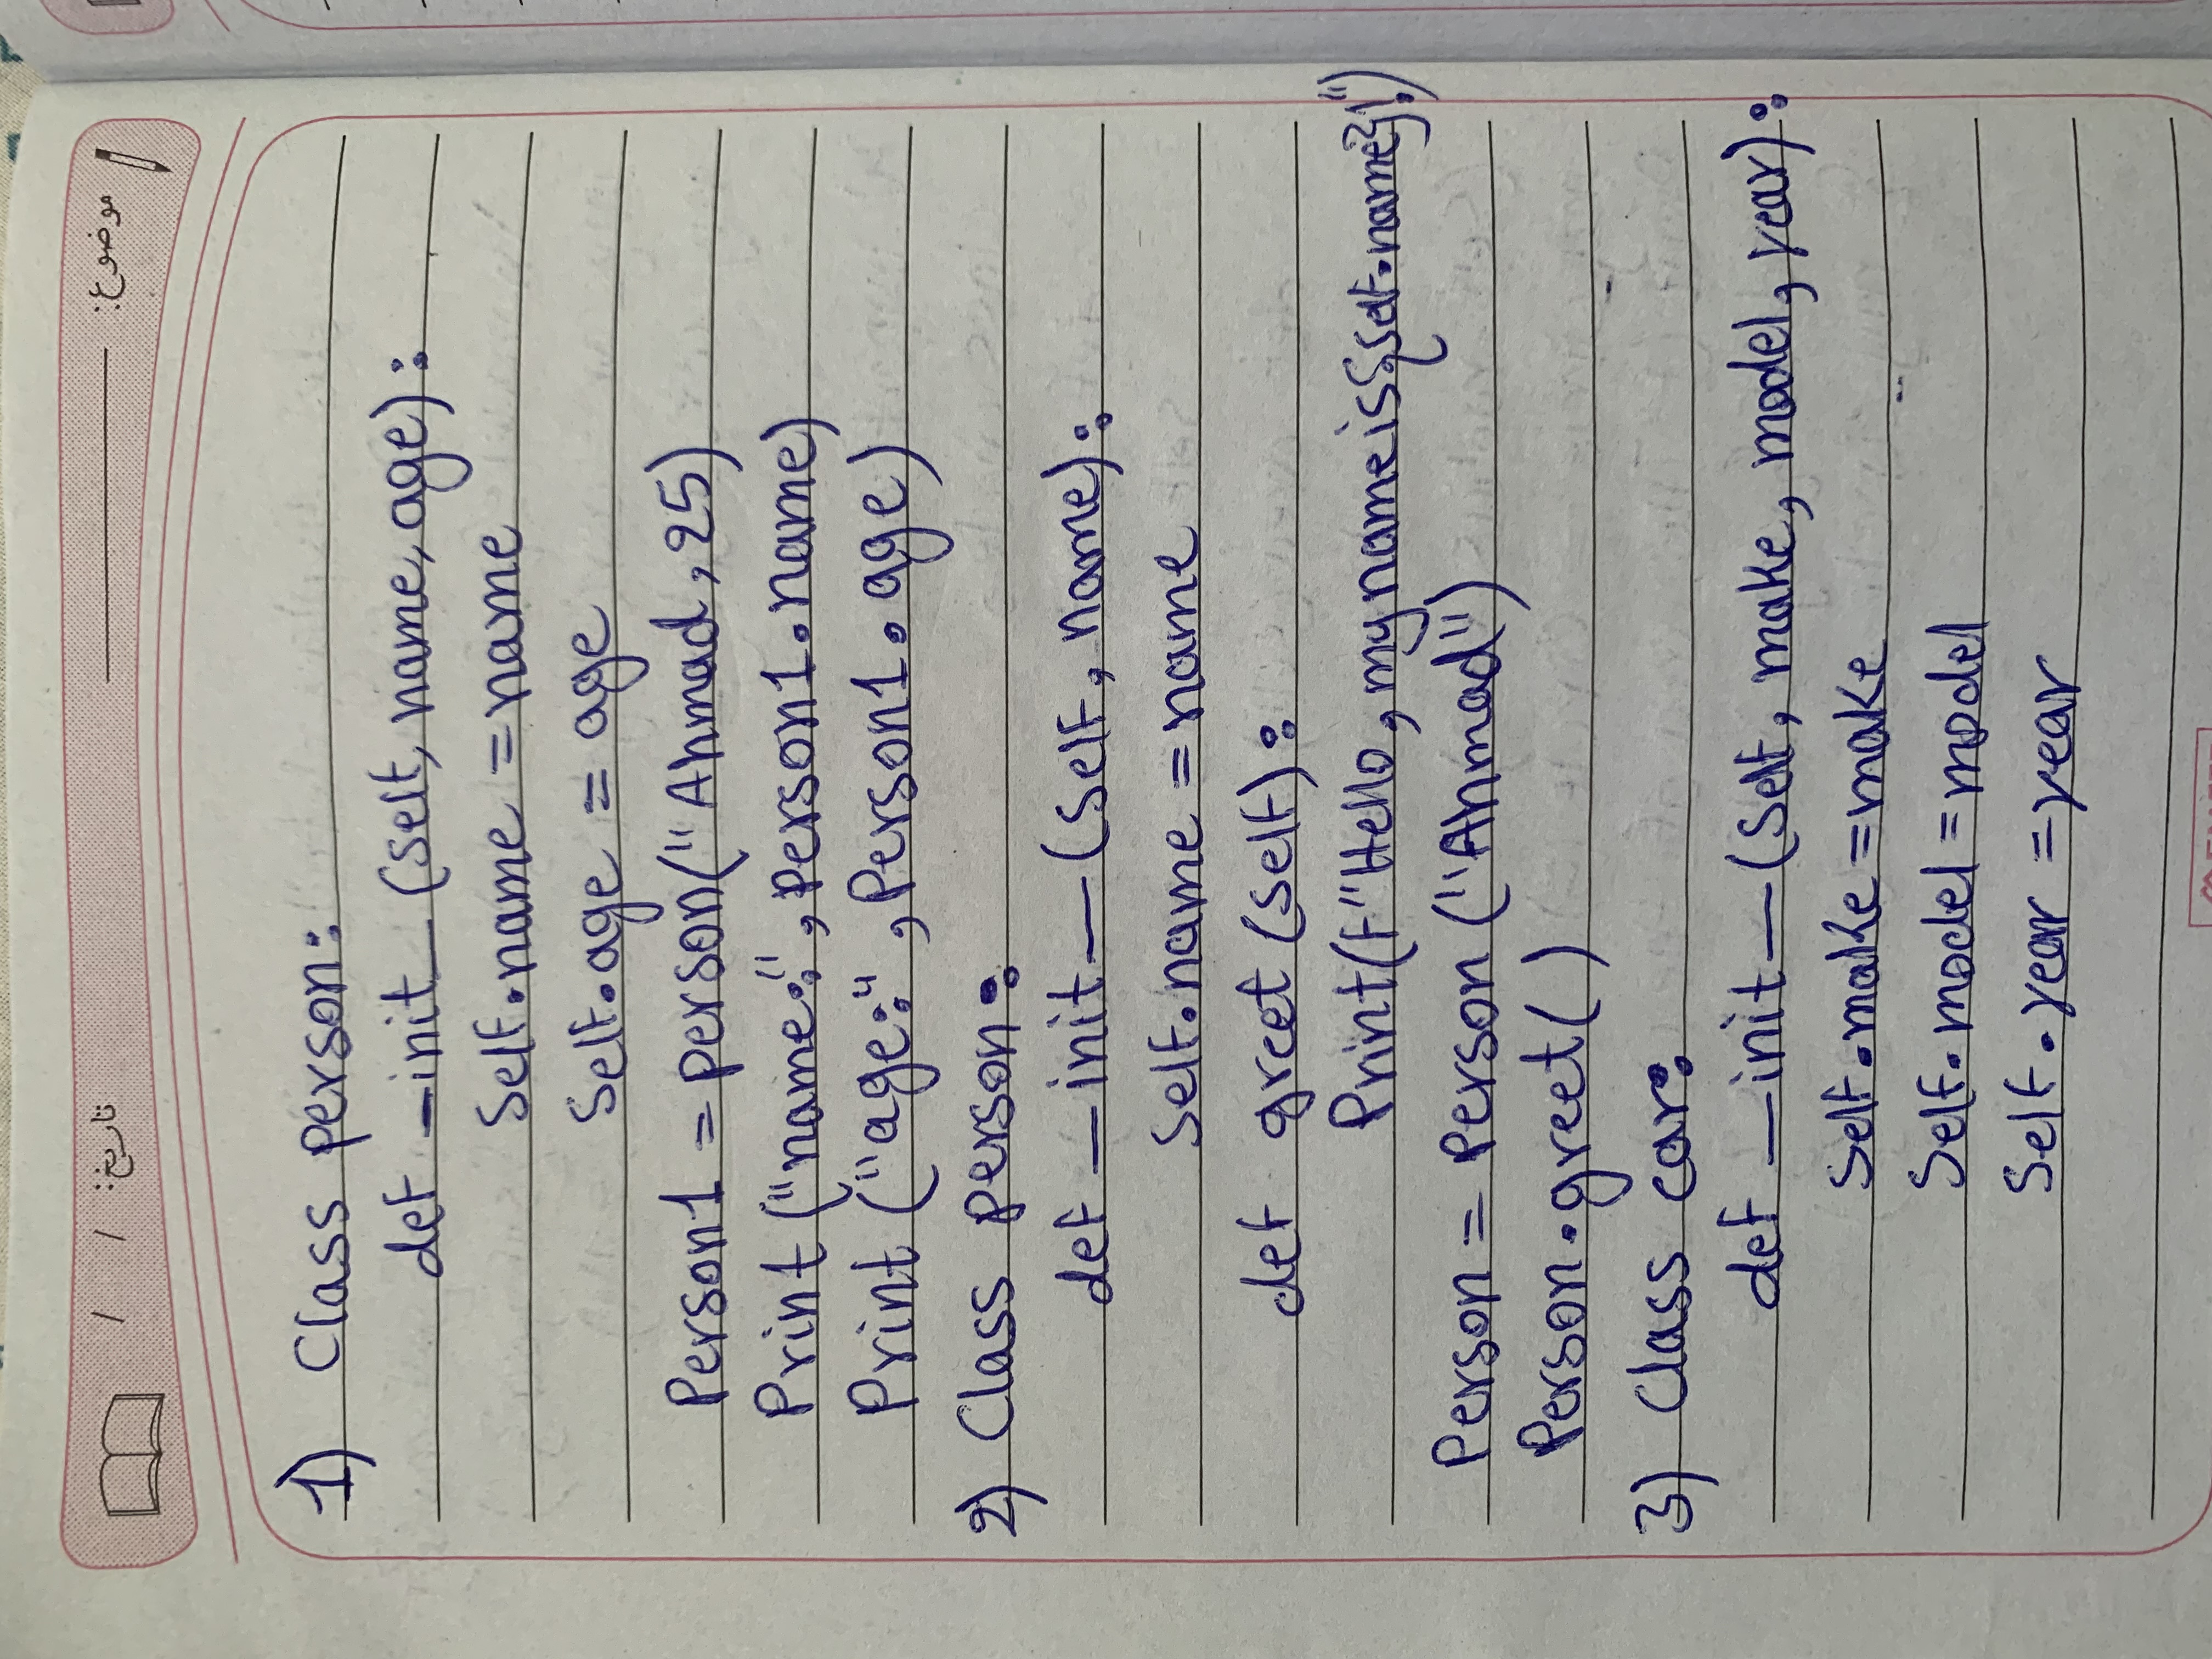 موضوع: تاریخ: / /
1) Class person:
def _init_ (self, name, age):
Self.name = name
Self.age = age
Person1 = person("Ahmad, 25)
Print ("name:", person1.name)
Print ("age:", Person1.age)
2) Class person:
def _init_ (self, name):
Self.name = name
def greet (self):
Print(f"Hello, my name is {self.name}!")
Person = Person ("Ahmad")
Person.greet()
3) Class car:
def _init_ (Self, make, model, year):
Self.make = make
Self.model = model
Self.year = year